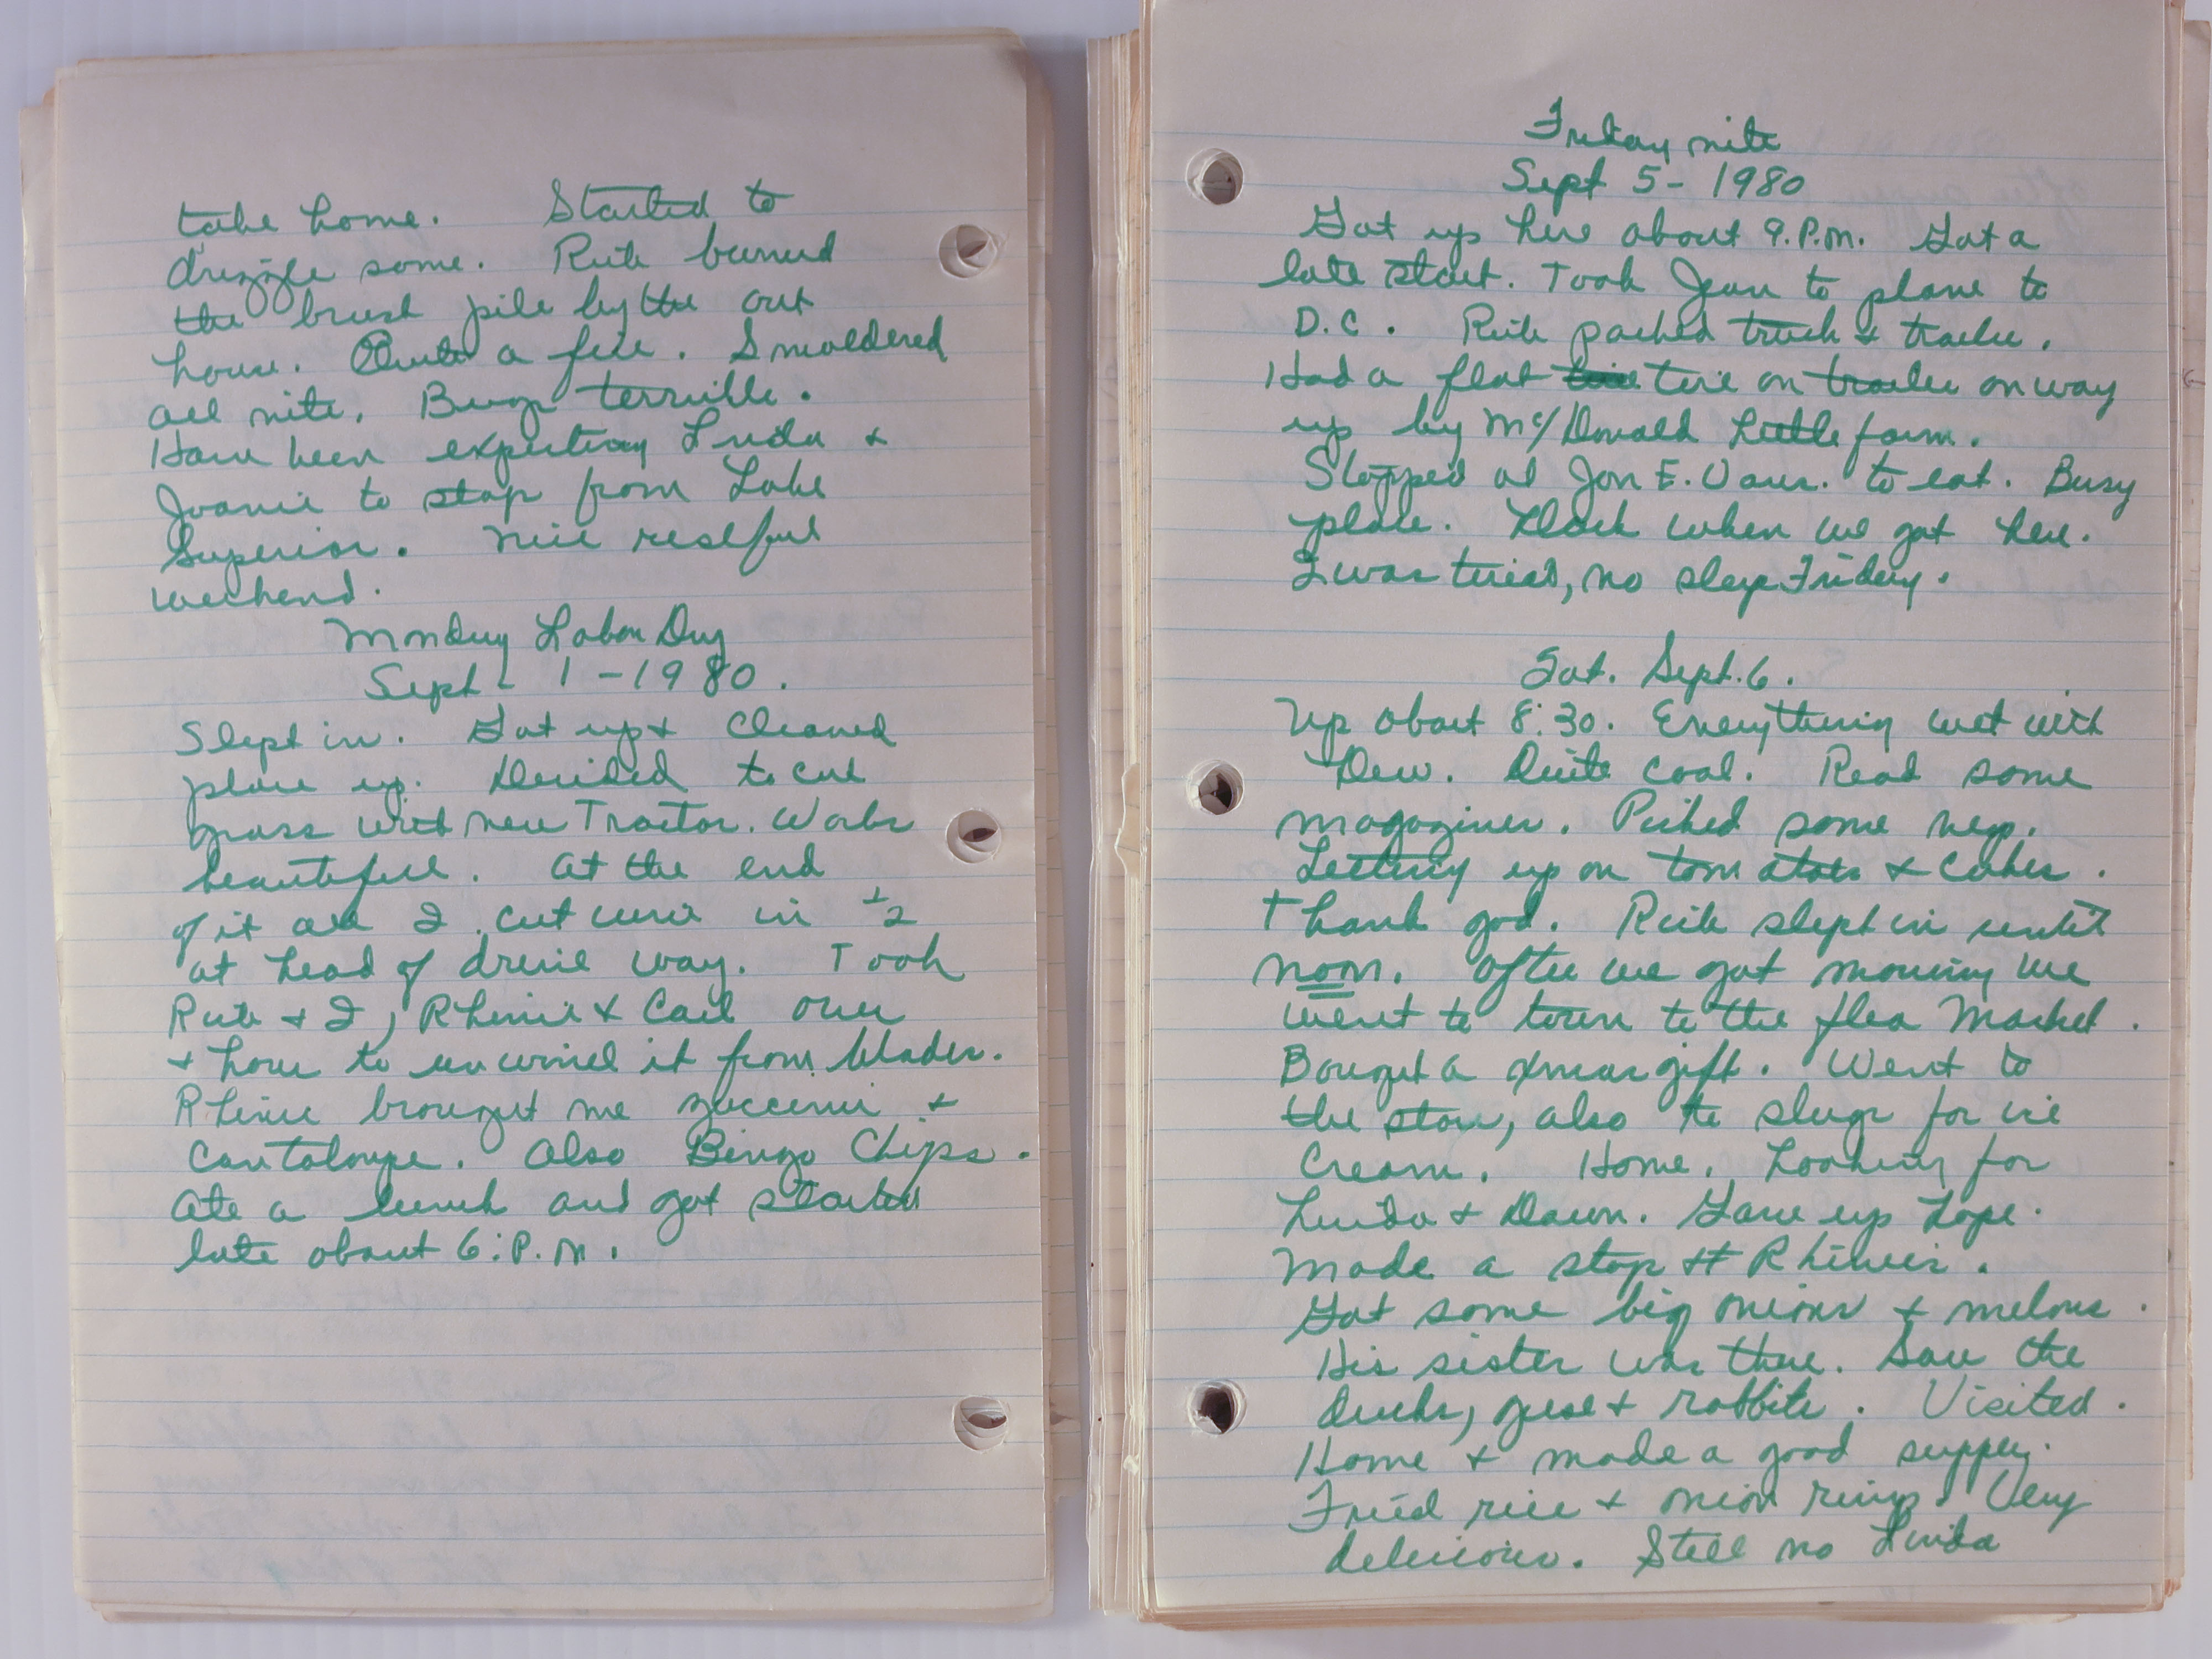 take home. Started to
drizzle some. Rite burned
the brush pile by the out
house. Quite a fire. Smoldered
all nite. Bugs terrible.
Have been expecting Linda &
Joanie to stop from Lake
Superior. Nice restful
weekend.
Monday Labor Day
Sept - 1 - 1980.
Slept in. Got up & cleaned
place up. Decided to cut
grass with new Tractor. Works
beautiful. At the end
of it all I cut wire in 1/2
at head of drive way. Took
Rite & I, Rhinie & Carl over
& hour to unwind it from blades.
Rhinie brought me zuccinni &
Cantaloupe. Also Bingo Chips.
Ate a lunch and got started
late about 6:P.M.
Friday nite
Sept 5 - 1980
Got up here about 9.P.M. Got a
late start. Took Jean to plane to
D.C. Rite packed truck & trailer.
Had a flat tire on trailer on way
up by Mc/Donald Little farm.
Stopped at Jon E. Vans. to eat. Busy
place. Dark when we got here.
I was tired, no sleep Friday.
Sat. Sept. 6.
Up about 8:30. Everything wet with
Dew. Quite cool. Read some
magazines. Picked some veg.
Letting up on tomatoes & cukes.
Thank god. Rite slept in until
noon. After we got moving we
went to town to the flea Market.
Bought a xmas gift. Went to
the store, also to slugs for ice
Cream. Home. Looking for
Linda & Dawn. Gave up hope.
Made a stop at Rhinies.
Got some big onions & melons.
His sister was there. Saw the
Ducks, geese & rabbits. Visited.
Home & made a good supper.
Fried rice & onion rings. Very
delicious. Still no Linda